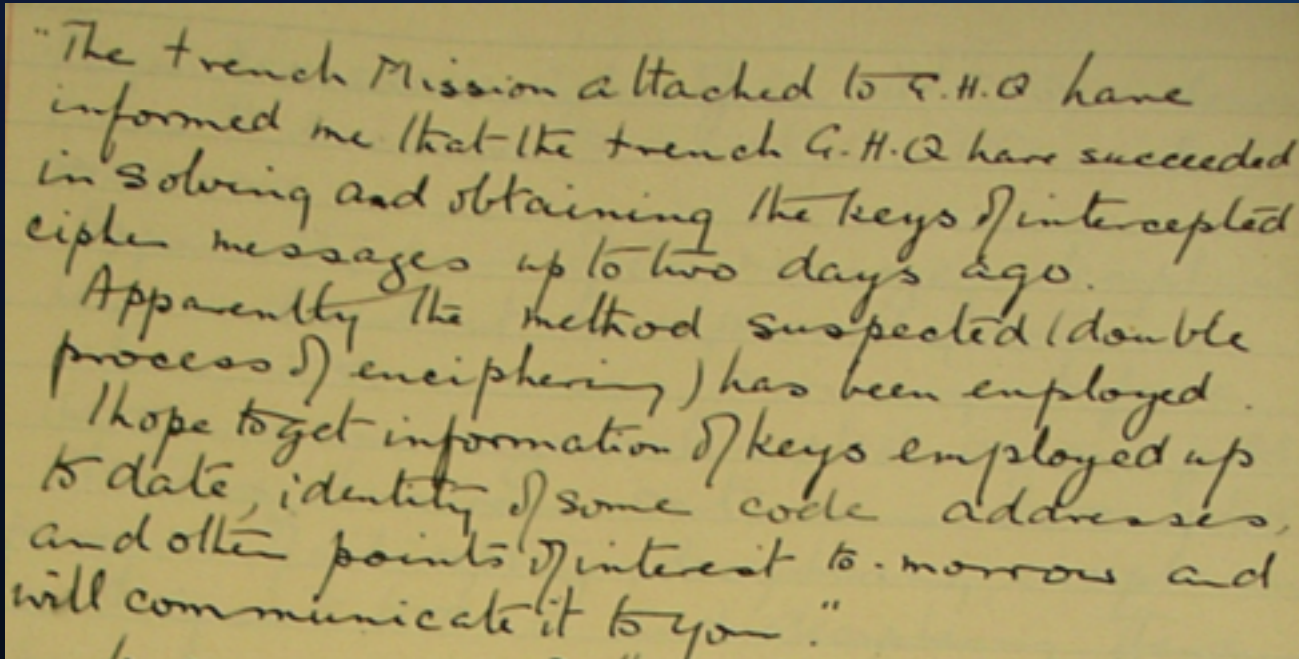 "The French Mission attached to G.H.Q have
informed me that the French G.H.Q have succeeded
in solving and obtaining the keys of intercepted
cipher messages up to two days ago.
Apparently the method suspected (double
process of enciphering) has been employed.
I hope to get information of keys employed up
to date, identity of some code addresses,
and other points of interest to-morrow and
will communicate it to you."